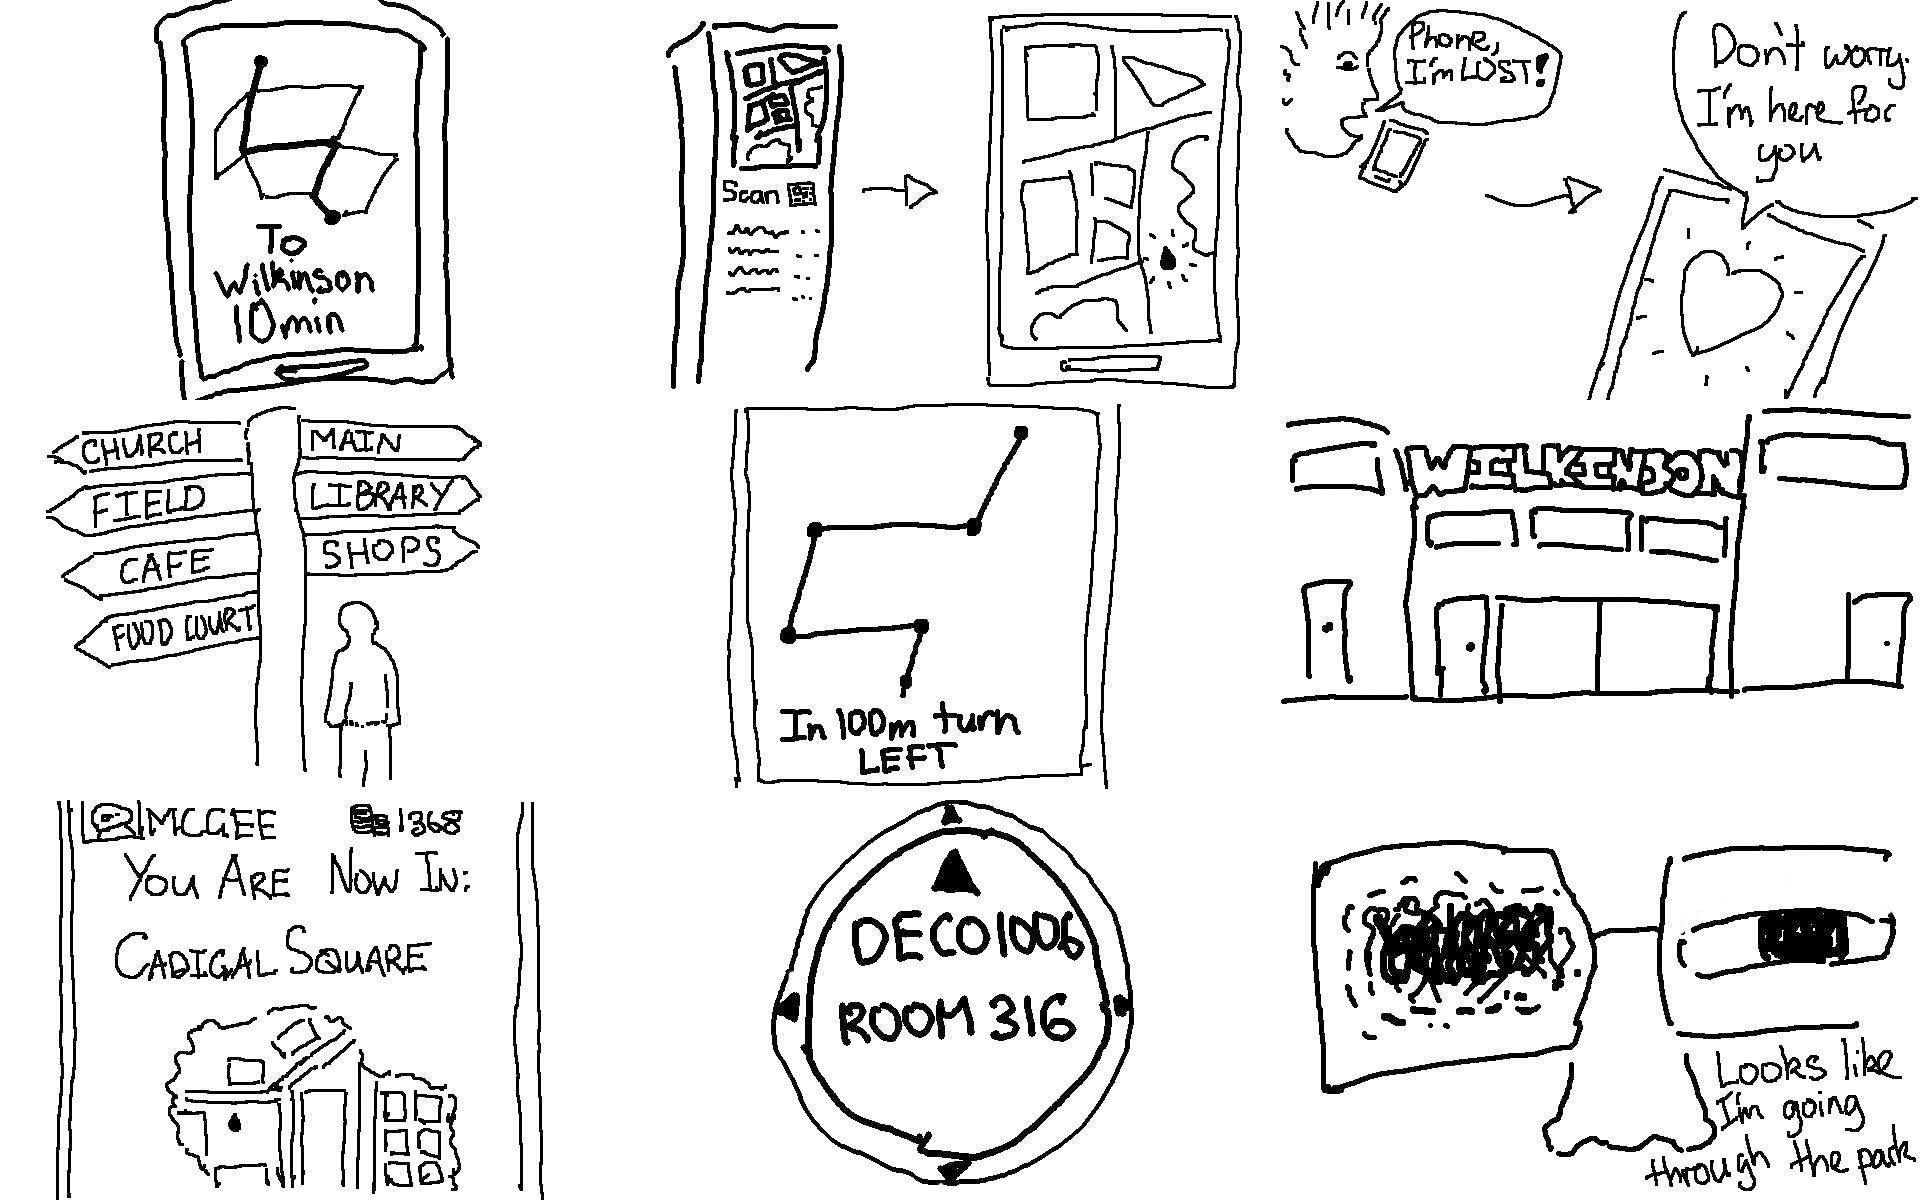 To
Wilkinson
10min
Scan
Phone,
I'm LOST!
Don't worry.
I'm here for
you
CHURCH
FIELD
CAFE
FOOD COURT
MAIN
LIBRARY
SHOPS
In 100m turn
LEFT
WILKINSON
MCGEE 1368
YOU ARE NOW IN:
CADIGAL SQUARE
DECO1006
ROOM 316
Looks like
I'm going
through the park